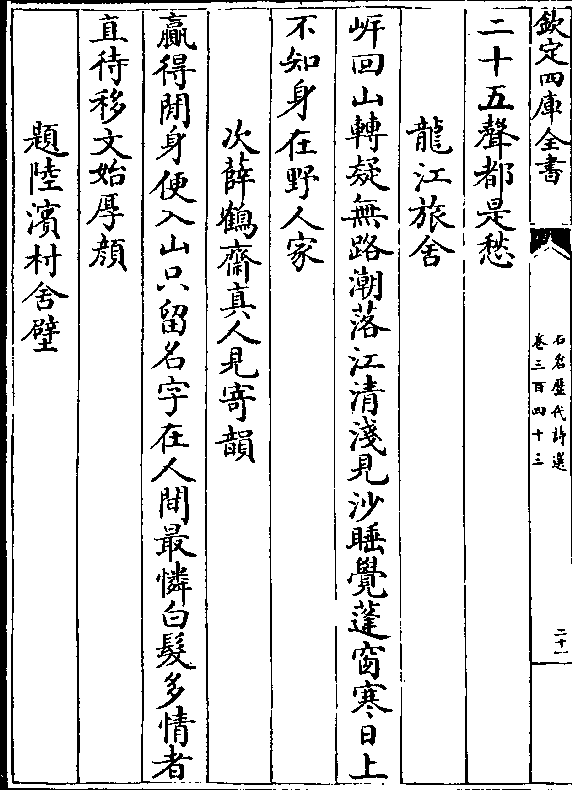 欽定四庫全書
石倉歷代詩選
卷三百四十三
二十一
二十五聲都是愁
龍江旅舍
㟁回山轉疑無路潮落江清淺見沙睡覺蓬窗寒日上
不知身在野人家
次薛鶴齋真人見寄韻
贏得閒身便入山只留名字在人間最憐白髮多情者
直待移文始厚顔
題陸濱村舍壁